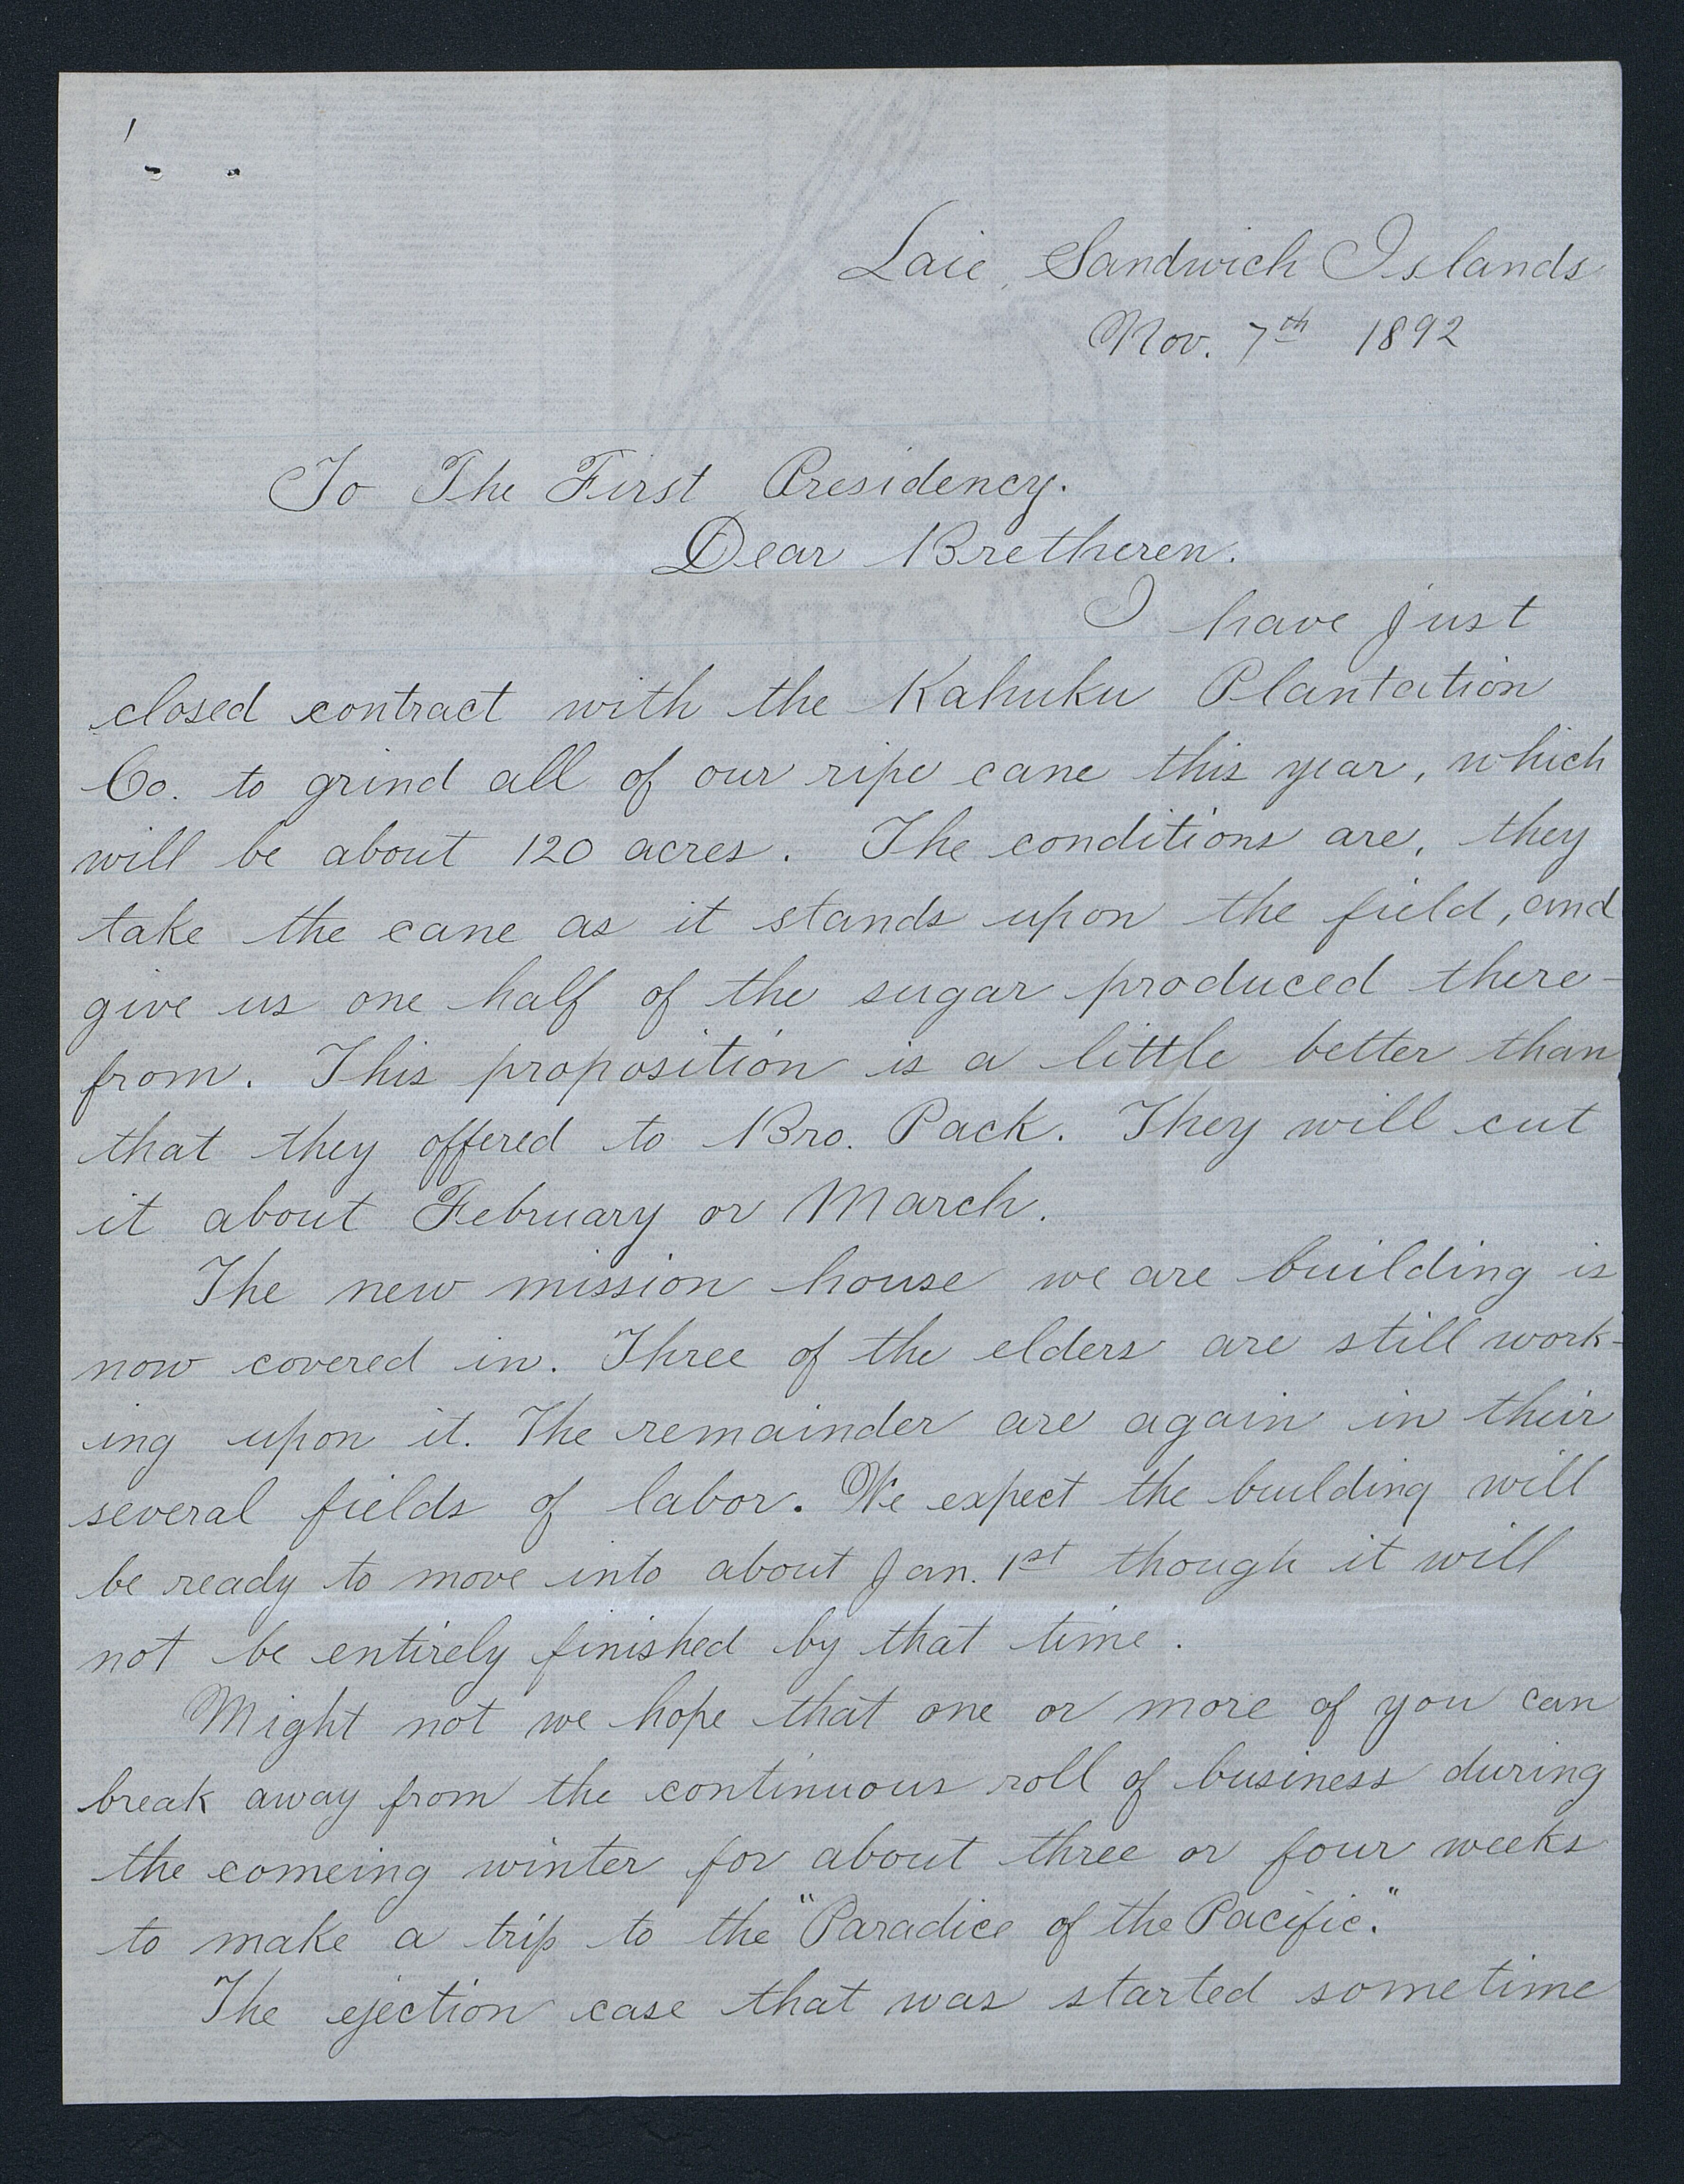 Laie, Sandwich Islands
Nov. 7th 1892
To The First Presidency.
Dear Bretheren.
I have just
closed contract with the Kahuku Plantation
Co. to grind all of our ripe cane this year, which
will be about 120 acres. The conditions are, they
take the cane as it stands upon the field, and
give us one half of the sugar produced there-
from. This proposition is a little better than
that they offered to Bro. Pack. They will cut
it about February or March.
The new mission house we are building is
now covered in. Three of the elders are still work-
ing upon it. The remainder are again in their
several fields of labor. We expect the building will
be ready to move into about Jan. 1st though it will
not be entirely finished by that time.
Might not we hope that one or more of you can
break away from the continuous roll of business during
the comeing winter for about three or four weeks
to make a trip to the "Paradice of the Pacific."
The ejection case that was started sometime